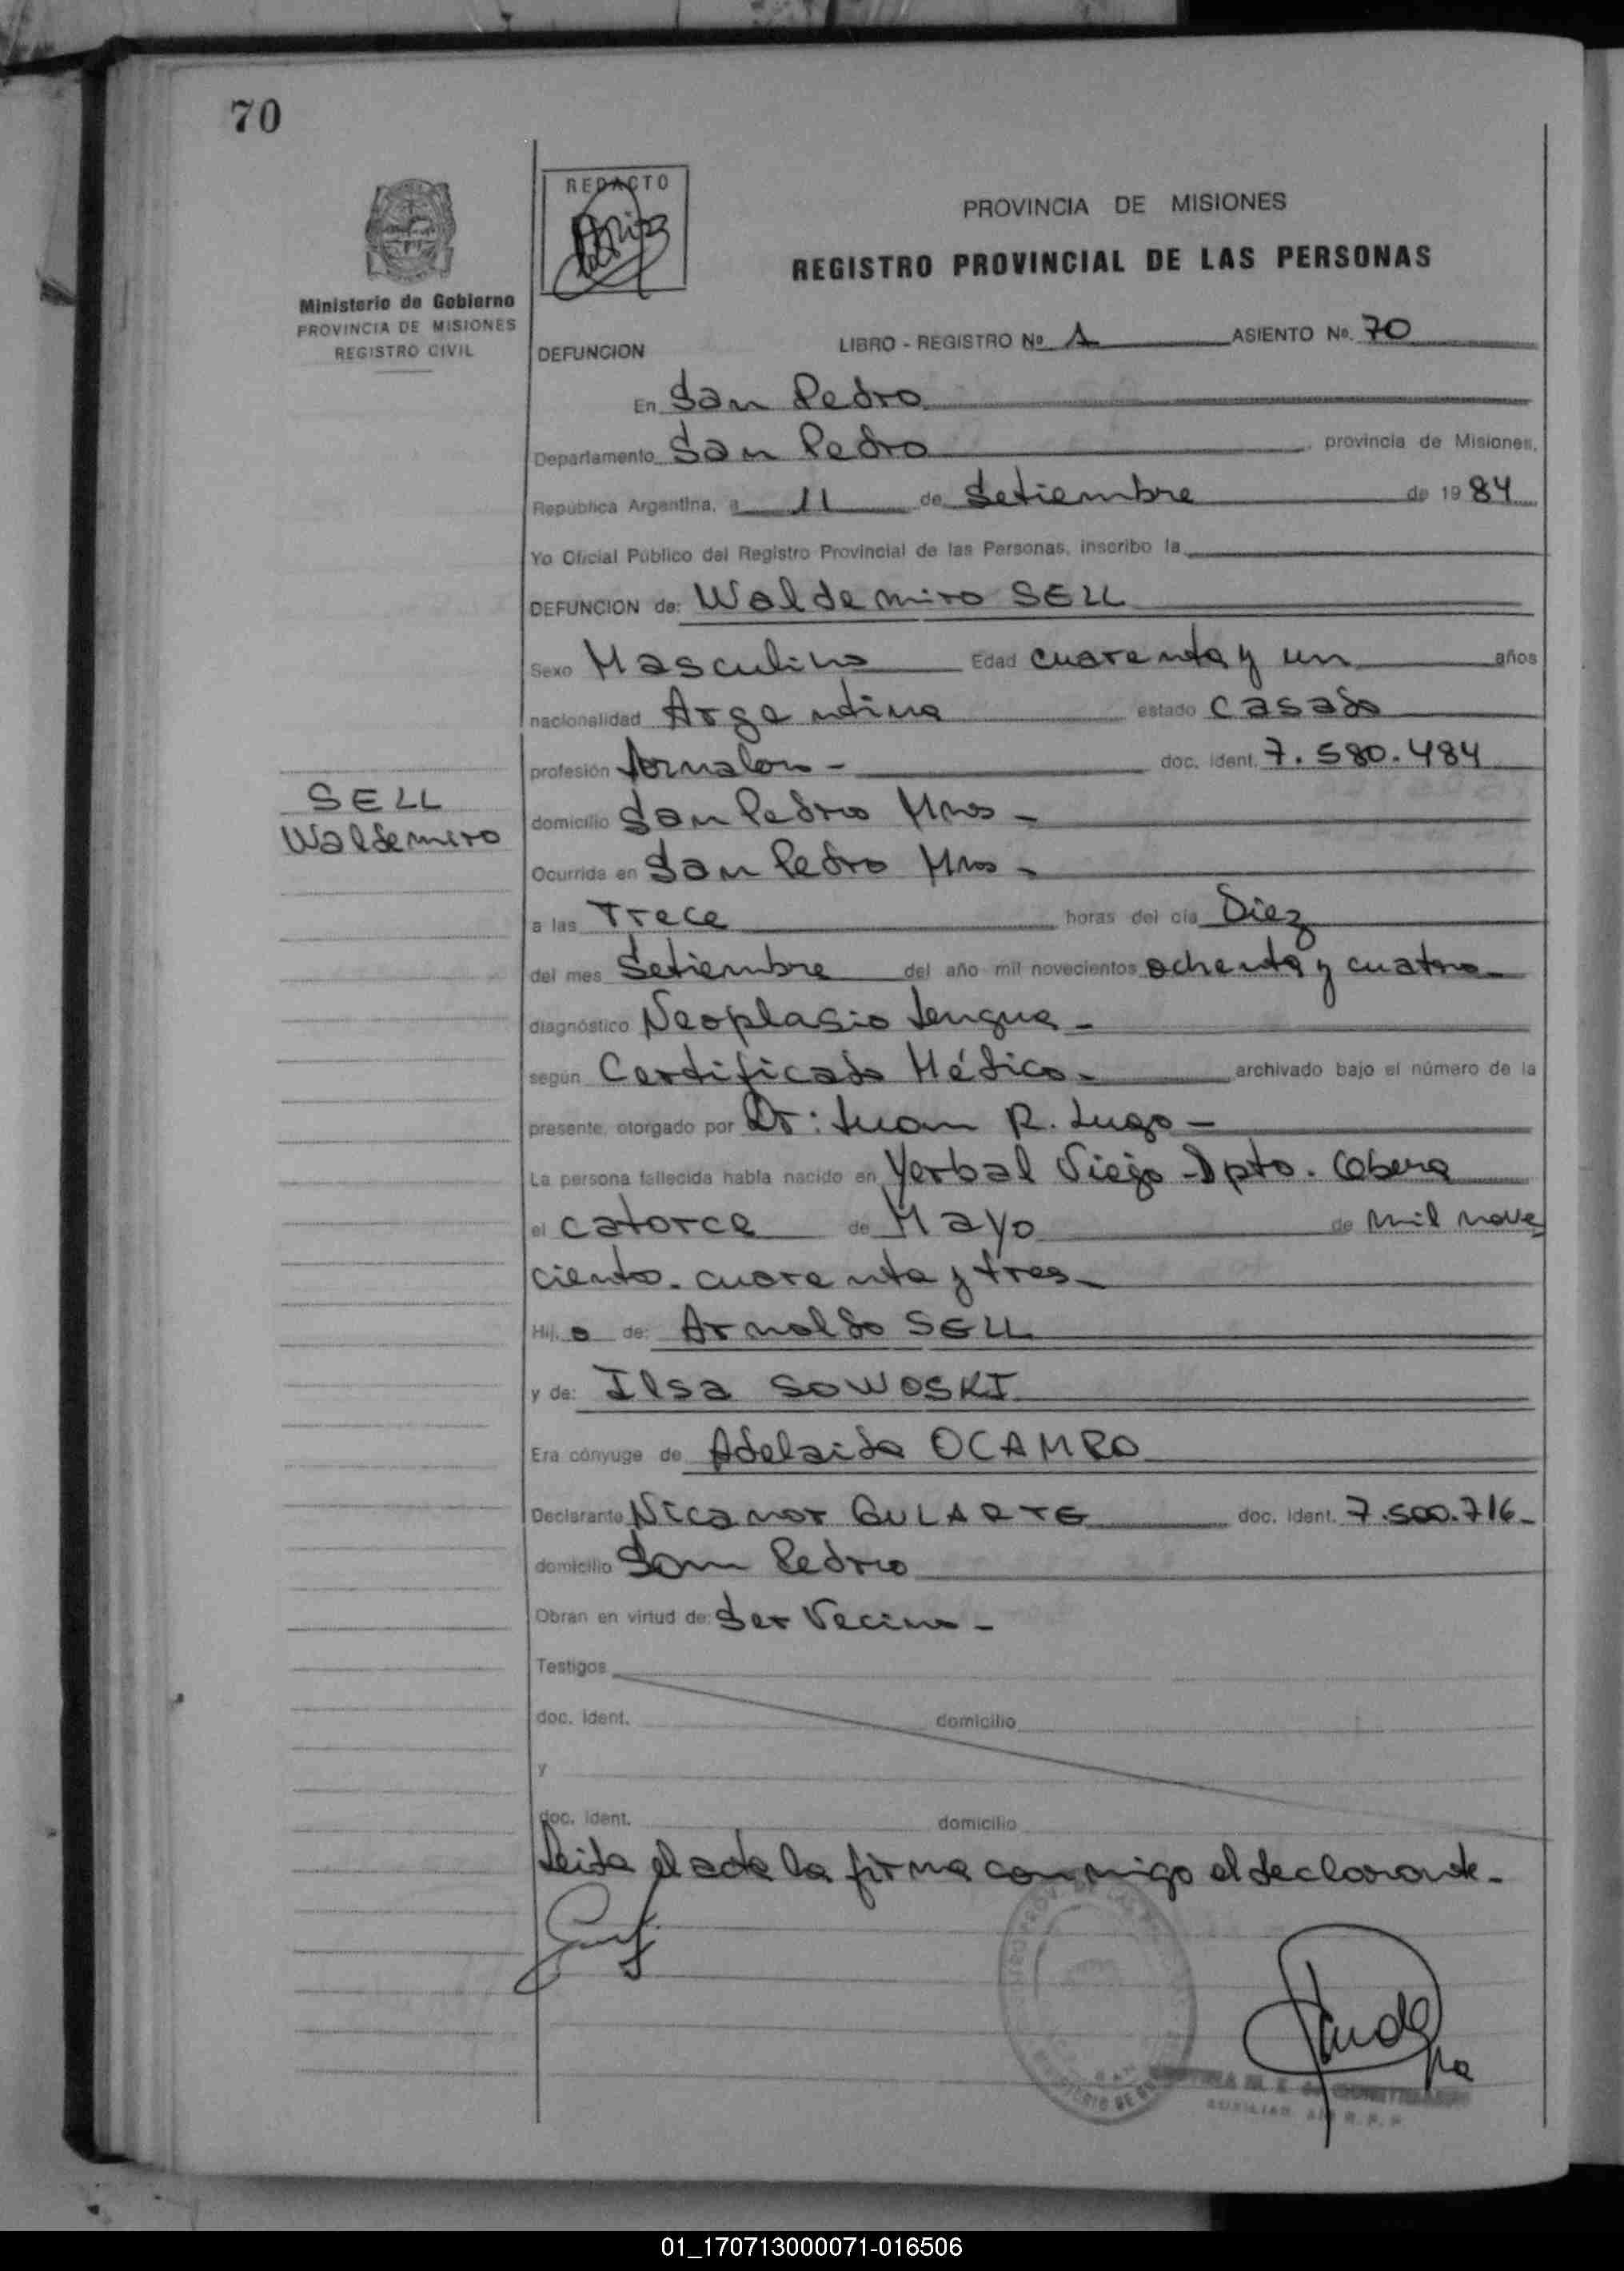 70
REDACTO
PROVINCIA DE MISIONES
REGISTRO PROVINCIAL DE LAS PERSONAS
Ministerio de Gobierno
PROVINCIA DE MISIONES
REGISTRO CIVIL
DEFUNCION LIBRO - REGISTRO Nº 1 ASIENTO Nº. 70
En San Pedro
Departamento San Pedro, provincia de Misiones,
República Argentina, a 11 de Setiembre de 1984
Yo Oficial Público del Registro Provincial de las Personas, inscribo la
DEFUNCION de: Waldemiro SELL
Sexo Masculino Edad cuarenta y un años
nacionalidad Argentina estado casado
profesión Jornalero - doc. ident. 7.580.484
SELL
Waldemiro
domicilio San Pedro Mnes -
Ocurrida en San Pedro Mnes -
a las Trece horas del día Diez
del mes Setiembre del año mil novecientos ochenta y cuatro
diagnóstico Neoplasia Lengua -
según Certificado Médico - archivado bajo el número de la
presente, otorgado por Dr: Juan R. Lugo -
La persona fallecida había nacido en Yerbal Viejo - Dpto. Obera
el catorce de Mayo de mil nove
ciento. cuarenta y tres -
Hij o de: Arnoldo SELL
y de: Ilsa SOWOSKI
Era cónyuge de Adelaida OCAMPO
Declarante Nicanor GULARTE doc. ident. 7.500.716 -
domicilio San Pedro
Obran en virtud de: Ser Vecino -
Testigos
doc. ident. domicilio
y
doc. ident. domicilio
Leida el acta la firma conmigo el declarante -
AUXILIAR R. P. P.
01_170713000071-016506